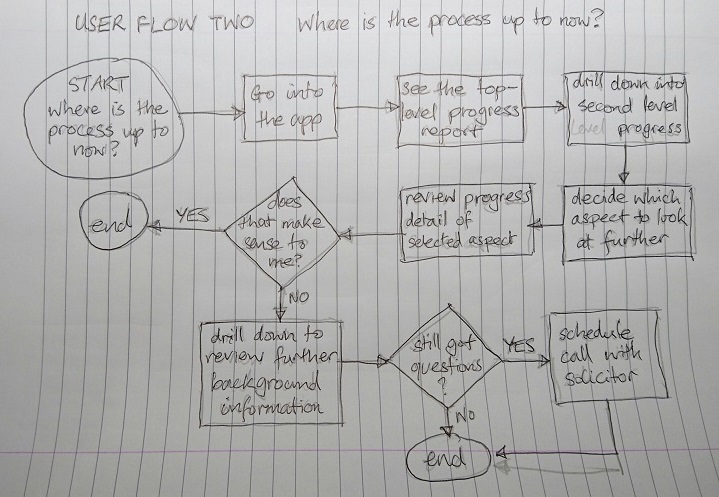 USER FLOW TWO Where is the process up to now?
START
where is the
process up to
now?
Go into
the app
see the top-
level progress
report
drill down into
second level
level progress
decide which
aspect to look
at further
review progress
detail of
selected aspect
does
that make
sense to
me?
YES
end
NO
drill down to
review further
background
information
still got
questions
?
YES
schedule
call with
solicitor
NO
end